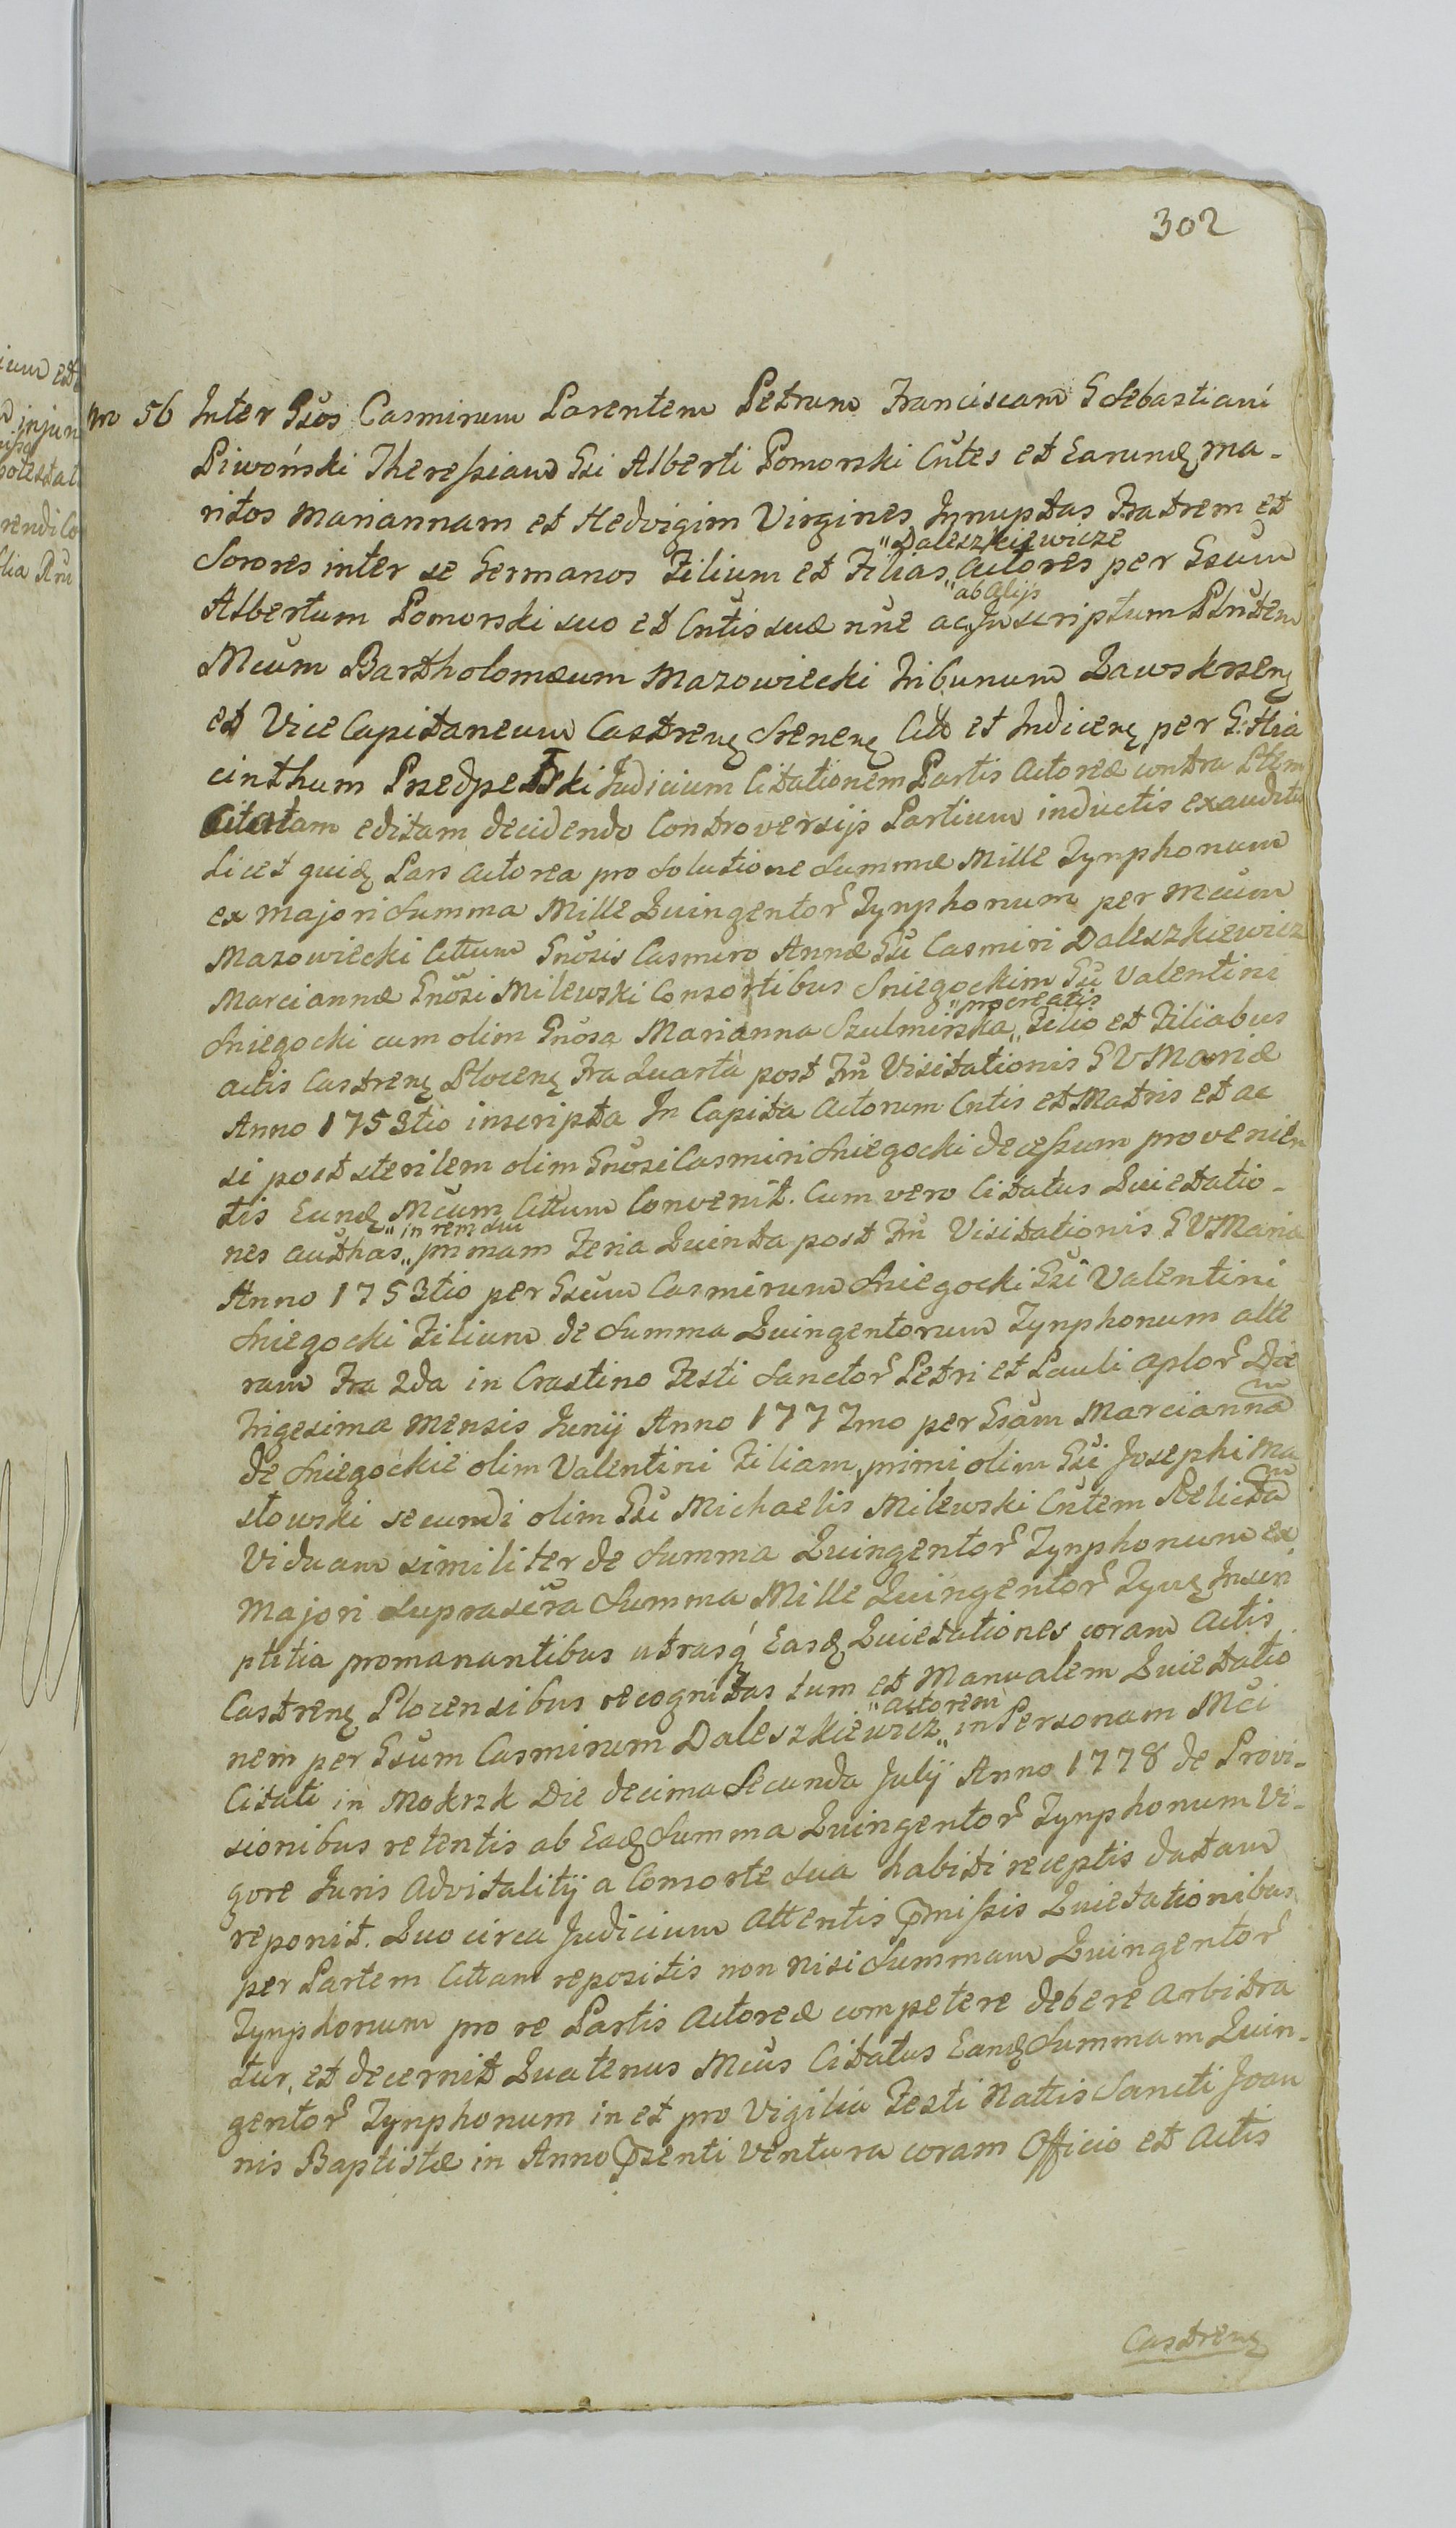 302
nro 56 Inter Gsos Casmirum Parentem Petrum Franciscam G Sebastiani
Piwoński Theressiam Gsi Alberti Pomorski Cntes et Earundę ma-
ritos Mariannam et Hedvigim Virgines Innuptas Fratrem et
"Daleszkiewicze
Sorores inter se Germanos Filium et Filias,, Actores per Gsum
"ab alijs
Albertum Pomorski suo et Cntis suæ nñe ac,, Inscriptum Plnũtem
Mcum Bartholomæum Mazowiecki Tribunum Zawskrzenę
et ViceCapitaneum Castrenę Srenenę Citt et Judicenę per G. Hia
cinthum Przedpełski Judicium Citationem Partis Actoreæ contra Ptem
Citatam editam decidendo Controversijs Partium inductis exauditis
Licet quidę Pars Actorea pro Solutione Summæ Mille Tynphonum
ex Majori Summa Mille Quingentor Tynphonum per Mcum
Mazowiecki Cittum Gnosis Casmiro Annæ Gsi Casmiri Daleszkiewicz
Marciannæ Gnosi Milewski Consortibus Sniegockim Gsi Valentini
"procreatis
Sniegocki cum olim Gnosa Marianna Szulmirska,, Filio et Filiabus
actis Castrenę Plocenę Fra Quarta post Fm Visitationis G V Mariæ
Anno 1753tio inscripta In Capita Actorum Cntis et Matris et ac
si post sterilem olim Gnosi Casmiri Sniegocki decessum provenien
tis Eundę Mcum Cittum Convenit. Cum vero Citatus Quietatio-
"in rem sui
nes authas,, primam Feria Quinta post Fm Visitationis G V Mariæ
Anno 1753tio per Gsum Casmirum Sniegocki Gsi Valentini
Sniegocki Filium de Summa Quingentorum Tynphonum alte
ram Fra 2da in Crastino Festi Sanctor Petri et Pauli Aplor Die
Trigesima Mensis Junij Anno 1777mo per Gsam Marcianna
de Sniegockie olim Valentini Filiam, primi olim Gsi Josephi Ma
słowski secundi olim Gsi Michaelis Milewski Cntem Relicta
Viduam similiter de Summa Quingentor Tynphonum ex
Majori Suprascra Summa Mille Quingentor Tynę Inscri
ptitia promanantibus utrasq Easdę Quietationes coram Actis
Castrenę Plocensibus recognitas tum et Manualem Quietatio
"actorem
nem per Gsum Casmirum Daleszkiewicz,, in Personam Mci
Citati in Mokrzk Die decima Secunda Julij Anno 1778 de Provi-
sionibus retentis ab Eadę Summa Quingentor Tynphonum Vi-
gore Juris Advitalitij a Consorte Sua habiti receptis datam
reponit. Quocirca Judicium Attentis præmissis Quietationibus
per Partem Cittam repositis non nisi Summam Quingentor
Tynphonum pro re Partis Actoreæ competere debere Arbitra
tur, et decernit Quatenus Mcus Citatus Eandę Summam Quin-
gentor Tynphonum in et pro Vigilia Festi Nattis Sancti Joan
nis Baptistæ in Anno præsenti Ventura coram Officio et Actis
Castrenę